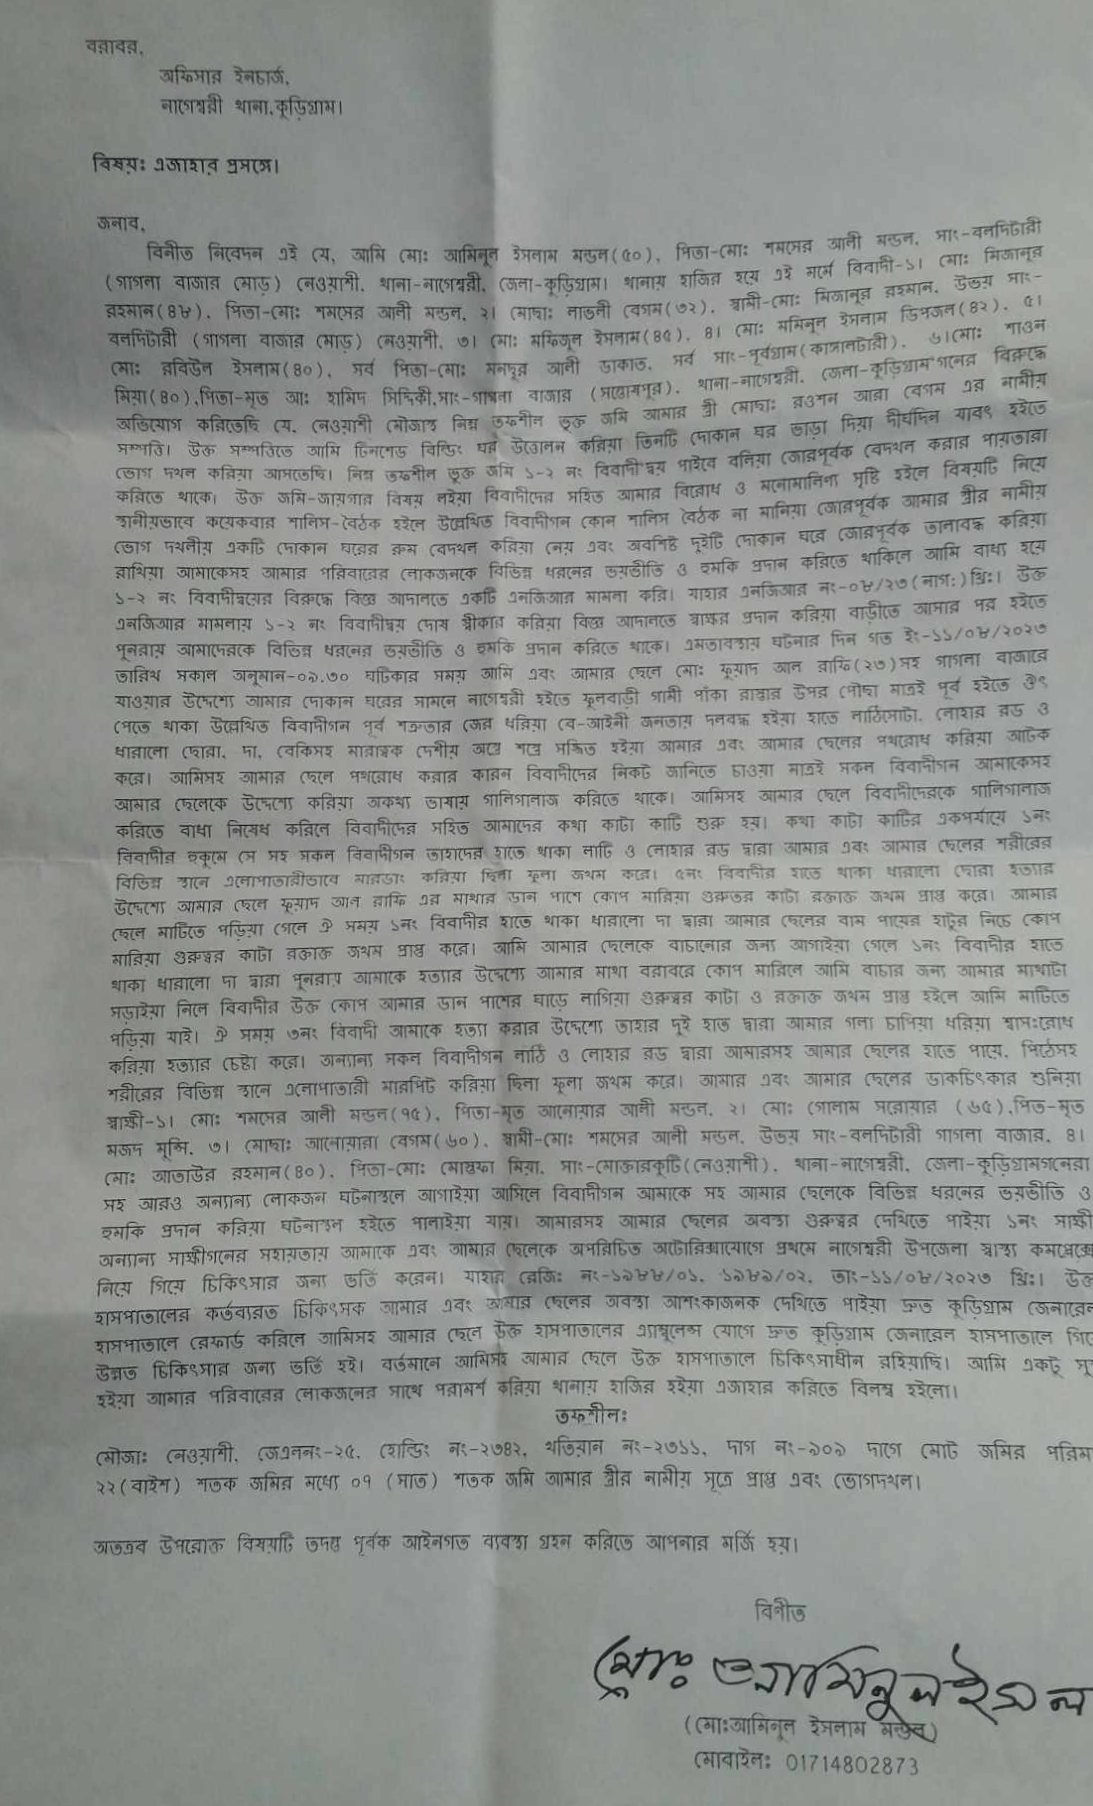 বরাবর,
অফিসার ইনচার্জ,
নাগেশ্বরী থানা,কুড়িগ্রাম।
বিষয়ঃ এজাহার প্রসঙ্গে।
জনাব,
বিনীত নিবেদন এই যে, আমি মোঃ আমিনুল ইসলাম মন্ডল(৫০), পিতা-মোঃ শমসের আলী মন্ডল, সাং-বলদিটারী
(গাগলা বাজার মোড়) নেওয়াশী, থানা-নাগেশ্বরী, জেলা-কুড়িগ্রাম। থানায় হাজির হয়ে এই মর্মে বিবাদী-১। মোঃ মিজানুর
রহমান(৪৮), পিতা-মোঃ শমসের আলী মন্ডল, ২। মোছাঃ লাভলী বেগম(৩২), স্বামী-মোঃ মিজানুর রহমান, উভয় সাং-
বলদিটারী (গাগলা বাজার মোড়) নেওয়াশী, ৩। মোঃ মফিজুল ইসলাম(৪৫), ৪। মোঃ মমিনুল ইসলাম ডিপজল(৪২), ৫।
মোঃ রবিউল ইসলাম(৪০), সর্ব পিতা-মোঃ মনছুর আলী ডাকাত, সর্ব সাং-পূর্বগ্রাম(কাঙ্গালটারী), ৬।মোঃ শাওন
মিয়া(৪০),পিতা-মৃত আঃ হামিদ সিদ্দিকী,সাং-গাগলা বাজার (সন্তোষপুর), থানা-নাগেশ্বরী, জেলা-কুড়িগ্রামগনের বিরুদ্ধে
অভিযোগ করিতেছি যে, নেওয়াশী মৌজাস্থ নিম্ন তফশীল ভুক্ত জমি আমার স্ত্রী মোছাঃ রওশন আরা বেগম এর নামীয়
সম্পত্তি। উক্ত সম্পত্তিতে আমি টিনশেড বিল্ডিং ঘর উত্তোলন করিয়া তিনটি দোকান ঘর ভাড়া দিয়া দীর্ঘদিন যাবৎ হইতে
ভোগ দখল করিয়া আসতেছি। নিম্ন তফশীল ভুক্ত জমি ১-২ নং বিবাদীদ্বয় পাইবে বলিয়া জোরপূর্বক বেদখল করার পায়তারা
করিতে থাকে। উক্ত জমি-জায়গার বিষয় লইয়া বিবাদীদের সহিত আমার বিরোধ ও মনোমালিন্য সৃষ্টি হইলে বিষয়টি নিয়ে
স্থানীয়ভাবে কয়েকবার শালিস-বৈঠক হইলে উল্লেখিত বিবাদীগন কোন শালিস বৈঠক না মানিয়া জোরপূর্বক আমার স্ত্রীর নামীয়
ভোগ দখলীয় একটি দোকান ঘরের রুম বেদখল করিয়া নেয় এবং অবশিষ্ট দুইটি দোকান ঘরে জোরপূর্বক তালাবদ্ধ করিয়া
রাখিয়া আমাকেসহ আমার পরিবারের লোকজনকে বিভিন্ন ধরনের ভয়ভীতি ও হুমকি প্রদান করিতে থাকিলে আমি বাধ্য হয়ে
১-২ নং বিবাদীদ্বয়ের বিরুদ্ধে বিজ্ঞ আদালতে একটি এনজিআর মামলা করি। যাহার এনজিআর নং-০৮/২৩(নাগ:) খ্রিঃ। উক্ত
এনজিআর মামলায় ১-২ নং বিবাদীদ্বয় দোষ স্বীকার করিয়া বিজ্ঞ আদালতে স্বাক্ষর প্রদান করিয়া বাড়ীতে আসার পর হইতে
পুনরায় আমাদেরকে বিভিন্ন ধরনের ভয়ভীতি ও হুমকি প্রদান করিতে থাকে। এমতাবস্থায় ঘটনার দিন গত ইং-১১/০৮/২০২৩
তারিখ সকাল অনুমান-০৯.৩০ ঘটিকার সময় আমি এবং আমার ছেলে মোঃ ফুয়াদ আল রাফি(২৩)সহ গাগলা বাজারে
যাওয়ার উদ্দেশ্যে আমার দোকান ঘরের সামনে নাগেশ্বরী হইতে ফুলবাড়ী গামী পাঁকা রাস্তার উপর পৌছা মাত্রই পূর্ব হইতে ঔৎ
পেতে থাকা উল্লেখিত বিবাদীগন পূর্ব শত্রুতার জের ধরিয়া বে-আইনী জনতায় দলবদ্ধ হইয়া হাতে লাঠিসোটা, লোহার রড ও
ধারালো ছোরা, দা, বেকিসহ মারাত্বক দেশীয় অস্ত্রে শস্ত্রে সজ্জিত হইয়া আমার এবং আমার ছেলের পথরোধ করিয়া আটক
করে। আমিসহ আমার ছেলে পথরোধ করার কারন বিবাদীদের নিকট জানিতে চাওয়া মাত্রই সকল বিবাদীগন আমাকেসহ
আমার ছেলেকে উদ্দেশ্যে করিয়া অকথ্য ভাষায় গালিগালাজ করিতে থাকে। আমিসহ আমার ছেলে বিবাদীদেরকে গালিগালাজ
করিতে বাধা নিষেধ করিলে বিবাদীদের সহিত আমাদের কথা কাটা কাটি শুরু হয়। কথা কাটা কাটির একপর্যায়ে ১নং
বিবাদীর হুকুমে সে সহ সকল বিবাদীগন তাহাদের হাতে থাকা লাটি ও লোহার রড দ্বারা আমার এবং আমার ছেলের শরীরের
বিভিন্ন স্থানে এলোপাতারীভাবে মারডাং করিয়া ছিলা ফুলা জখম করে। ৫নং বিবাদীর হাতে থাকা ধারালো ছোরা দ্বারা হত্যার
উদ্দেশ্যে আমার ছেলে ফুয়াদ আল রাফি এর মাথার ডান পাশে কোপ মারিয়া গুরুতর কাটা রক্তাক্ত জখম প্রাপ্ত করে। আমার
ছেলে মাটিতে পড়িয়া গেলে ঐ সময় ১নং বিবাদীর হাতে থাকা ধারালো দা দ্বারা আমার ছেলের বাম পায়ের হাটুর নিচে কোপ
মারিয়া গুরুত্বর কাটা রক্তাক্ত জখম প্রাপ্ত করে। আমি আমার ছেলেকে বাচানোর জন্য আগাইয়া গেলে ১নং বিবাদীর হাতে
থাকা ধারালো দা দ্বারা পুনরায় আমাকে হত্যার উদ্দেশ্যে আমার মাথা বরাবরে কোপ মারিলে আমি বাচার জন্য আমার মাথাটা
সড়াইয়া নিলে বিবাদীর উক্ত কোপ আমার ডান পাশের ঘাড়ে লাগিয়া গুরুত্বর কাটা ও রক্তাক্ত জখম প্রাপ্ত হইলে আমি মাটিতে
পড়িয়া যাই। ঐ সময় ৩নং বিবাদী আমাকে হত্যা করার উদ্দেশ্যে তাহার দুই হাত দ্বারা আমার গলা চাপিয়া ধরিয়া শ্বাস:রোধ
করিয়া হত্যার চেষ্টা করে। অন্যান্য সকল বিবাদীগন লাঠি ও লোহার রড দ্বারা আমারসহ আমার ছেলের হাতে পায়ে, পিঠেসহ
শরীরের বিভিন্ন স্থানে এলোপাতারী মারপিট করিয়া ছিলা ফুলা জখম করে। আমার এবং আমার ছেলের ডাকচিৎকার শুনিয়া
স্বাক্ষী-১। মোঃ শমসের আলী মন্ডল(৭৫), পিতা-মৃত আনোয়ার আলী মন্ডল, ২। মোঃ গোলাম সরোয়ার (৬৫),পিত-মৃত
মজদ মুন্সি, ৩। মোছাঃ আনোয়ারা বেগম(৬০), স্বামী-মোঃ শমসের আলী মন্ডল, উভয় সাং-বলদিটারী গাগলা বাজার, ৪।
মোঃ আতাউর রহমান(৪০), পিতা-মোঃ মোস্তফা মিয়া, সাং-মোক্তারকুটি(নেওয়াশী), থানা-নাগেশ্বরী, জেলা-কুড়িগ্রামগনেরা
সহ আরও অন্যান্য লোকজন ঘটনাস্থলে আগাইয়া আসিলে বিবাদীগন আমাকে সহ আমার ছেলেকে বিভিন্ন ধরনের ভয়ভীতি ও
হুমকি প্রদান করিয়া ঘটনাস্থল হইতে পালাইয়া যায়। আমারসহ আমার ছেলের অবস্থা গুরুত্বর দেখিতে পাইয়া ১নং সাক্ষী
অন্যান্য সাক্ষীগনের সহায়তায় আমাকে এবং আমার ছেলেকে অপরিচিত অটোরিক্সাযোগে প্রথমে নাগেশ্বরী উপজেলা স্বাস্থ্য কমপ্লেক্সে
নিয়ে গিয়ে চিকিৎসার জন্য ভর্তি করেন। যাহার রেজিঃ নং-১৯৮৮/০১, ১৯৮৯/০২, তাং-১১/০৮/২০২৩ খ্রিঃ। উক্ত
হাসপাতালের কর্তব্যরত চিকিৎসক আমার এবং আমার ছেলের অবস্থা আশংকাজনক দেখিতে পাইয়া দ্রুত কুড়িগ্রাম জেনারেল
হাসপাতালে রেফার্ড করিলে আমিসহ আমার ছেলে উক্ত হাসপাতালের এ্যাম্বুলেন্স যোগে দ্রুত কুড়িগ্রাম জেনারেল হাসপাতালে গিয়ে
উন্নত চিকিৎসার জন্য ভর্তি হই। বর্তমানে আমিসহ আমার ছেলে উক্ত হাসপাতালে চিকিৎসাধীন রহিয়াছি। আমি একটু সু
হইয়া আমার পরিবারের লোকজনের সাথে পরামর্শ করিয়া থানায় হাজির হইয়া এজাহার করিতে বিলম্ব হইলো।
তফশীলঃ
মৌজাঃ নেওয়াশী, জেএলনং-২৫, হোল্ডিং নং-২৩৪২, খতিয়ান নং-২৩১১, দাগ নং-৯০৯ দাগে মোট জমির পরিমা
২২(বাইশ) শতক জমির মধ্যে ০৭ (সাত) শতক জমি আমার স্ত্রীর নামীয় সূত্রে প্রাপ্ত এবং ভোগদখল।
অতএব উপরোক্ত বিষয়টি তদন্ত পূর্বক আইনগত ব্যবস্থা গ্রহন করিতে আপনার মর্জি হয়।
বিনীত
মোঃ আমিনুল ইসলাম
(মো:আমিনুল ইসলাম মন্ডল)
মোবাইলঃ 01714802873